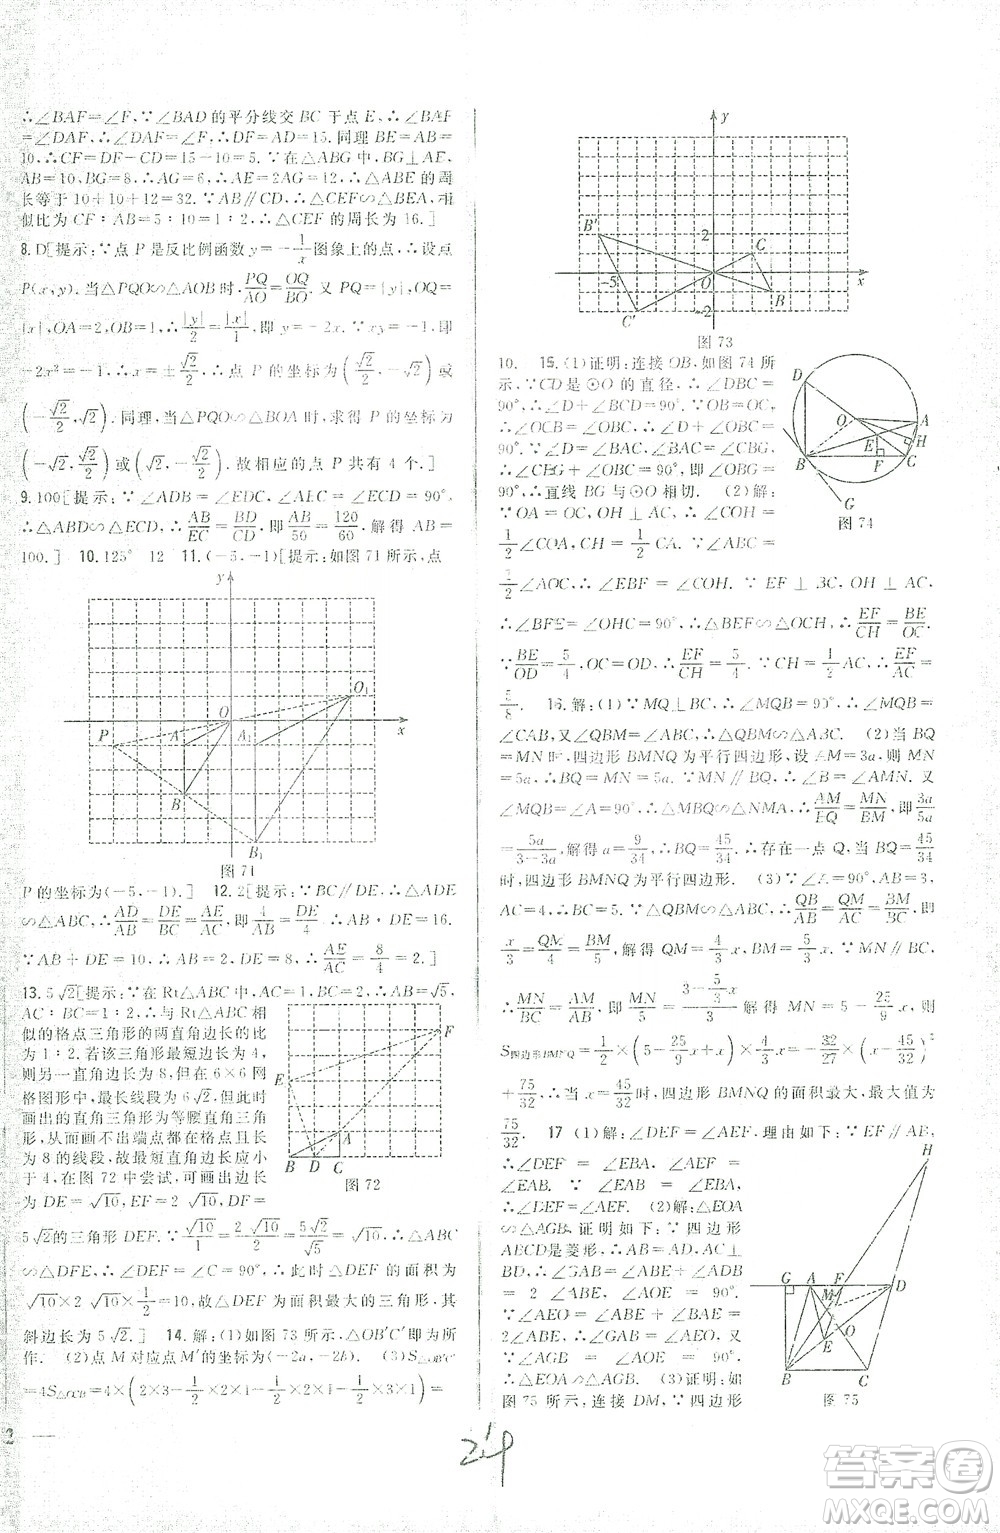 ∴∠BAF=∠F.∵∠BAD的平分线交BC于点E,∴∠BAF
=∠DAF,∴∠DAF=∠F,∴DF=AD=15.同理BE=AB=
10,∴CF=DF-CD=15-10=5.∵在△ABG中,BG⊥AE,
AB=10,BG=8,∴AG=6,∴AE=12,∴△ABE的周
长等于10+10+12=32.∵AB∥DF,∴△CEF∽△BEA,
似比为CF∶AB=5∶10=1∶2,∴△CEF的周长为16.]
8.D[提示:∵点P是反比例函数y=-1/x图象上的点,∴设点
P(x,y).当△PQO∽△AOB时,PQ/AO=OQ/BO.又PQ=|y|,OQ=
|x|,OA=2,OB=1,∴|y|/2=|x|/1,即y=-2x.∵xy=-1,即
-2x²=-1,∴x=±√2/2,∴点P的坐标为(√2/2,-√2)或
(-√2/2,√2).同理,当△PQO∽△BOA时,求得P的坐标为
(-√2,√2/2)或(√2,-√2/2).故相应的点P共有4个.]
9.100[提示:∵∠ADB=∠EDC,∠ABC=∠ECD=90°,
∴△ABD∽△ECD,∴AB/EC=BD/CD,即AB/50=120/60,解得AB=
100.] 10.125° 12 11.(-5,-1)[提示:如图71所示,点
y
O
O₁
x
P
A
A₁
B
B₁
图71
P的坐标为(-5,-1).] 12.2[提示:∵BC∥DE,∴△ADE
∽△ABC,∴AD/AB=DE/BC=AE/AC,即4/AB=DE/4,∴AB·DE=16.
∵AB+DE=10,∴AB=2,DE=8,∴AE/AC=8/4=2.]
13.5√2[提示:∵在Rt△ABC中,AC=1,BC=2,∴AB=√5,
AC∶BC=1∶2,∴与Rt△ABC相
似的格点三角形的两直角边长的比
为1∶2.若该三角形最短边长为4,
则另一直角边长为8,但在6×6网
格图形中,最长线段为6√2,但此时
画出的直角三角形为等腰直角三角
形,从而画不出端点都在格点且长
为8的线段,故最短直角边长应小
于4,在图72中尝试,可画出边长分
别为DE=√10,EF=2√10,DF=
F
E
A
B D C
图72
5√2的三角形DEF.∵√10/1=2√10/2=5√2/√5=√10,∴△ABC
∽△DFE,∴∠DEF=∠C=90°,∴此时△DEF的面积为
√10×2√10×1/2=10,故△DEF为面积最大的三角形,其
斜边长为5√2.] 14.解:(1)如图73所示,△OB′C′即为所
作. (2)点M对应点M′的坐标为(-2a,-2b). (3)S△OB′C′
=4S△OCB=4×(2×3-1/2×2×1-1/2×2×1-1/2×3×1)=
y
B′
2
C
-5
O
x
B
C′
-2
图73
10. 15.(1)证明:连接OB,如图74所
示,∵CD是⊙O的直径,∴∠DBC=
90°,∴∠D+∠BCD=90°.∵OB=OC,
∴∠OCB=∠OBC,∴∠D+∠OBC=
90°.∵∠D=∠BAC,∠BAC=∠CBG,
∴∠CBG+∠OBC=90°,即∠OBG=90°,
∴直线BG与⊙O相切. (2)解:
∵OA=OC,OH⊥AC,∴∠COH=
1/2∠COA,CH=1/2CA.∵∠ABC=
D
O
A
E
H
B
F
C
G
图74
1/2∠AOC,∴∠EBF=∠COH.∵EF⊥BC,OH⊥AC,
∴∠BFE=∠OHC=90°,∴△BEF∽△OCH,∴EF/CH=BE/OC.
∵BE/OD=5/4,OC=OD,∴EF/CH=5/4.∵CH=1/2AC,∴EF/AC=
5/8. 16.解:(1)∵MQ⊥BC,∴∠MQB=90°,∴∠MQB=
∠CAB.又∠QBM=∠ABC,∴△QBM∽△ABC. (2)当BQ
=MN时,四边形BMNQ为平行四边形,设AM=3a,则MN
=5a,BQ=MN=5a.∵MN∥BQ,∴∠B=∠AMN.又
∠MQB=∠A=90°,∴△MBQ∽△NMA,∴AM/BQ=MN/BM,即3a/5a
=5a/(3-3a),解得a=9/34,∴BQ=MN=45/34,∴存在,当BQ=45/34
时,四边形BMNQ为平行四边形. (3)∵∠A=90°,AB=3,
AC=4,∴BC=5.∵△QBM∽△ABC,∴QB/AB=QM/AC=BM/BC,即
x/3=QM/4=BM/5,解得QM=4/3x,BM=5/3x.∵MN∥BC,
∴MN/BC=AM/AB,即MN/5=(3-5/3x)/3,解得MN=5-25/9x,则
S四边形BMNQ=1/2×(5-25/9x+x)×4/3x=-32/27(x-45/32)²+
75/32,∴当x=45/32时,四边形BMNQ的面积最大,最大值为
75/32. 17.(1)解:∠DEF=∠AEF.理由如下:∵EF∥AB,
∴∠DEF=∠EBA,∠AEF=
∠EAB.∵∠EAB=∠EBA,
∴∠DEF=∠AEF. (2)解:△EOA
∽△AGB.证明如下:∵四边形
ABCD是菱形,∴AB=AD,AC⊥
BD,
∠BAE=2∠ABE,
=∠ABE+∠BAE=2∠ABE,
∴∠AEO=∠GAB.又∠AGB=
∠AOE=90°,
∴△EOA∽△AGB. (3)证明:如
图75所示,连接DM,∵四边形
H
G A F D
M
O
E
B C
图75
2
24
答案圈
MXQE.COM